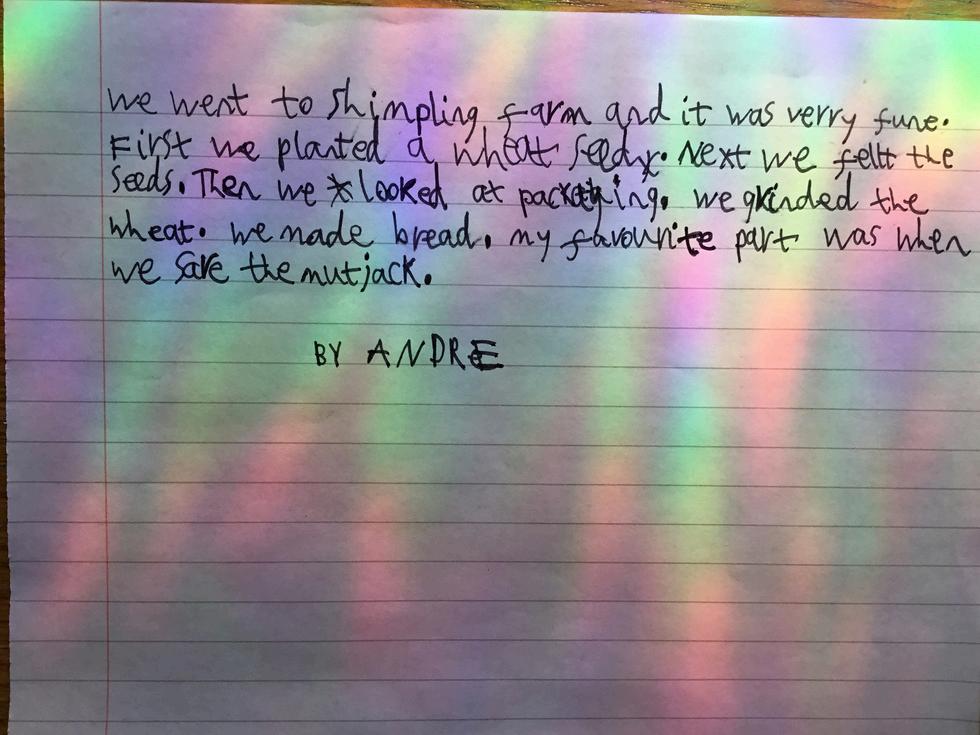 we went to Shimpling farm and it was verry fune.
First we planted a wheat seed. Next we fellt the
Seeds. Then we looked at packaging. we grinded the
wheat. we made bread. my favourite part was when
we sare the mutjack.
BY ANDRE